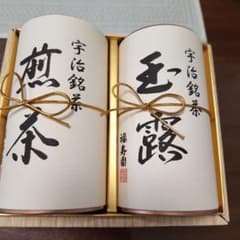 宇治銘茶
煎茶
宇治銘茶
玉露
福寿園